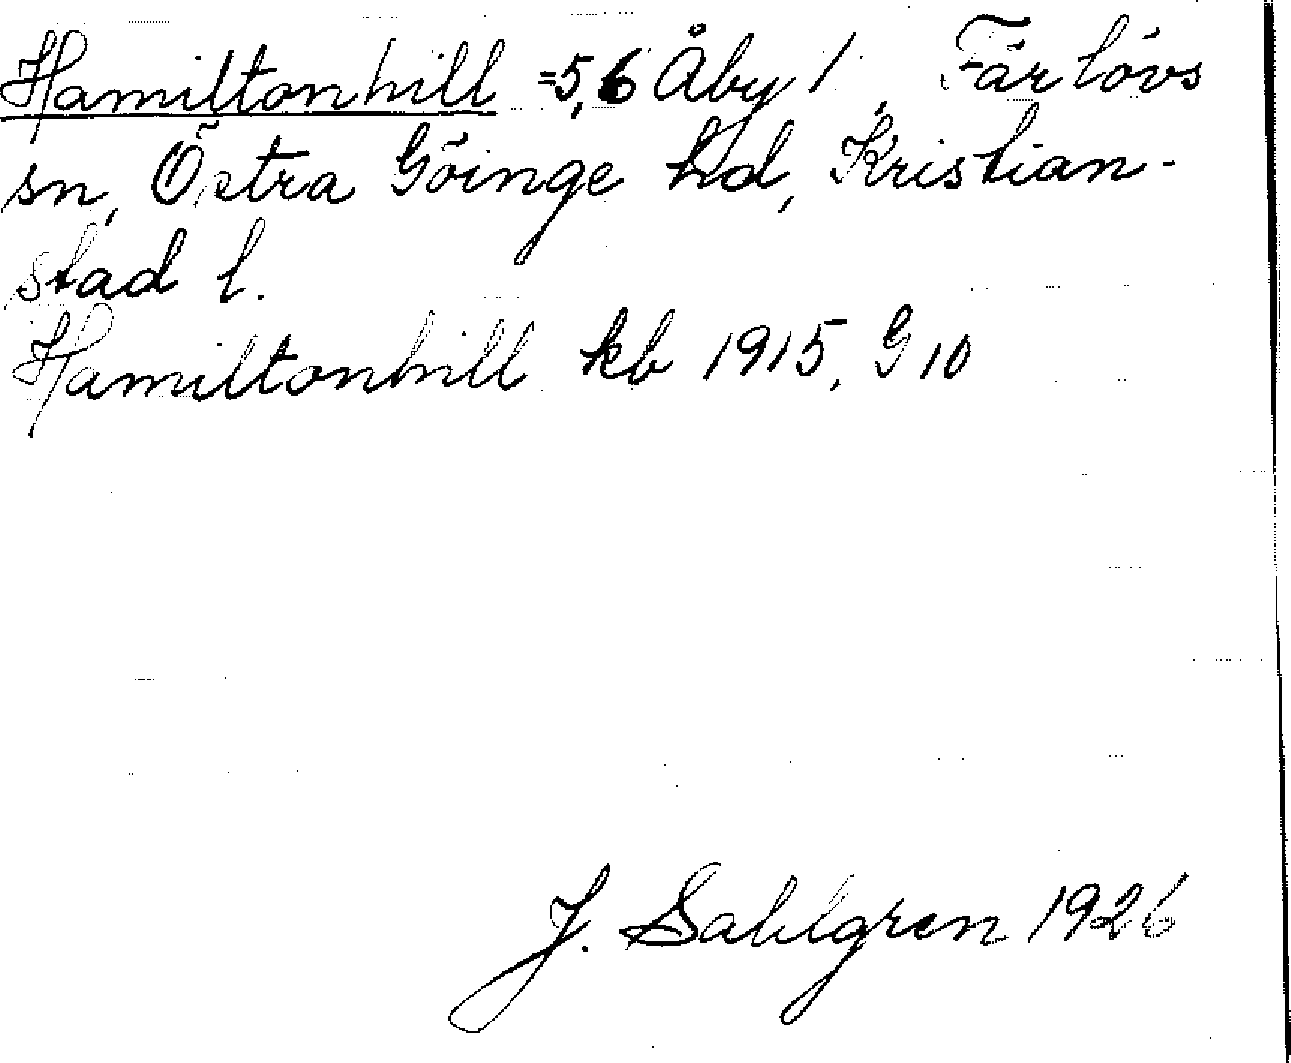 Hamiltonhill =5,6 Åby 1, Färlövs
sn, Östra Göinge hd, Kristian-
stad l.
Hamiltonhill kb 1915, G 10
J. Sahlgren 1926